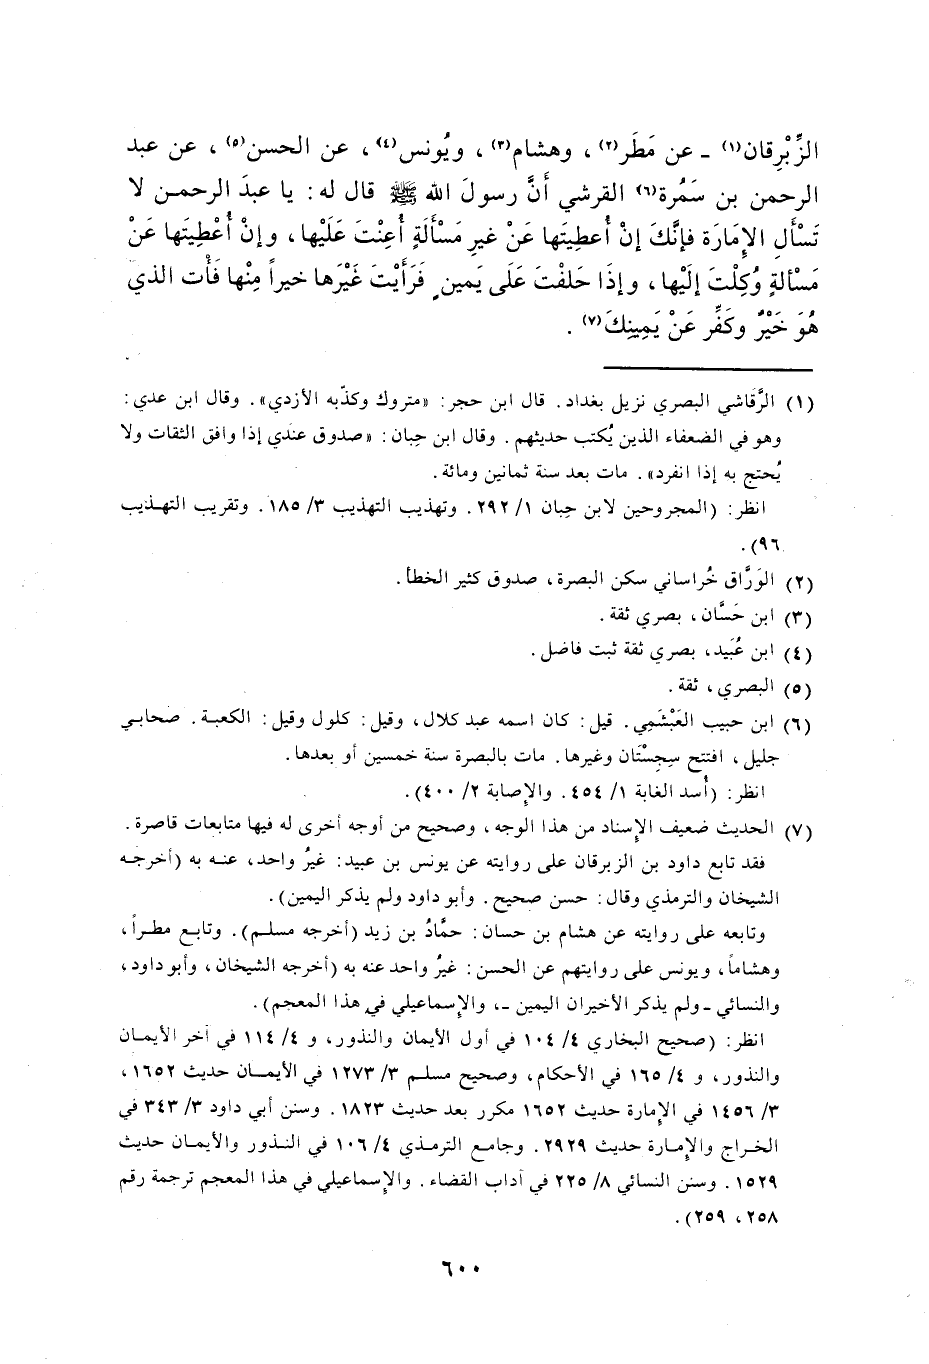 الزِّبْرِقان(١) ـ عن مَطَر(٢) ، وهشام(٣) ، ويُونس(٤) ، عن الحسن(٥) ، عن عبد
الرحمن بن سَمُرة(٦) القرشي أَنَّ رسولَ الله ﷺ قال له : يا عبدَ الرحمـن لا
تَسْأَلِ الإِمَارَة فإنَّكَ إنْ أُعطيتَها عَنْ غيرِ مَسْأَلَةٍ أُعِنْتَ عَلَيْها ، وإنْ أُعْطِيتَها عَنْ
مَسْألةٍ وُكِلْتَ إلَيْها ، وإذَا حَلفْتَ عَلَى يَمينٍ فَرَأَيْتَ غَيْرَها خيراً مِنْها فَأْت الذي
هُوَ خَيْرٌ وكَفِّر عَنْ يَمِينِكَ(٧) .
(١) الرَّقَاشي البصري نزيل بغداد . قال ابن حجر : «متروك وكذّبه الأزدي» . وقال ابن عدي :
وهو في الضعفاء الذين يُكتب حديثهم . وقال ابن حِبان : «صدوق عندي إذا وافق الثقات ولا
يُحتج به إذا انفرد» . مات بعد سنة ثمانين ومائة .
انظر : (المجروحين لابن حِبان ١/ ٢٩٢ . وتهذيب التهذيب ٣/ ١٨٥ . وتقريب التهـذيب
٩٦) .
(٢) الوَرَّاق خُراساني سكن البصرة ، صدوق كثير الخطأ .
(٣) ابن حَسَّان ، بصري ثقة .
(٤) ابن عُبَيد ، بصري ثقة ثبت فاضل .
(٥) البصري ، ثقة .
(٦) ابن حبيب العَبْشَمِي . قيل : كان اسمه عبد كلال ، وقيل : كلول وقيل : الكعبـة . صحابـي
جليل ، افتتح سِجِسْتَان وغيرها . مات بالبصرة سنة خمسين أو بعدها .
انظر : (أُسد الغابة ١/ ٤٥٤ . والإصابة ٢/ ٤٠٠) .
(٧) الحديث ضعيف الإسناد من هذا الوجه ، وصحيح من أوجه أخرى له فيها متابعات قاصرة .
فقد تابع داود بن الزبرقان على روايته عن يونس بن عبيد : غيرُ واحد ، عنـه به (أخرجـه
الشيخان والترمذي وقال : حسن صحيح . وأبو داود ولم يذكر اليمين) .
وتابعه على روايته عن هشام بن حسان : حمَّادُ بن زيد (أخرجه مسلـم) . وتابـع مطـراً ،
وهشاماً ، ويونس على روايتهم عن الحسن : غيرُ واحد عنه به (أخرجه الشيخان ، وأبو داود ،
والنسائي ـ ولم يذكر الأخيران اليمين ـ ، والإسماعيلي في هذا المعجم) .
انظر : (صحيح البخاري ٤/ ١٠٤ في أول الأيمان والنذور ، و ٤/ ١١٤ في آخر الأيمـان
والنذور ، و ٤/ ١٦٥ في الأحكام ، وصحيح مسلم ٣/ ١٢٧٣ في الأيمـان حديث ١٦٥٢ ،
٣/ ١٤٥٦ في الإمارة حديث ١٦٥٢ مكرر بعد حديث ١٨٢٣ . وسنن أبي داود ٣/ ٣٤٣ في
الخـراج والإمـارة حديث ٢٩٢٩ . وجامع الترمذي ٤/ ١٠٦ في النـذور والأيمـان حديث
١٥٢٩ . وسنن النسائي ٨/ ٢٢٥ في آداب القضاء . والإسماعيلي في هذا المعجم ترجمة رقم
٢٥٨ ، ٢٥٩) .
٦٠٠